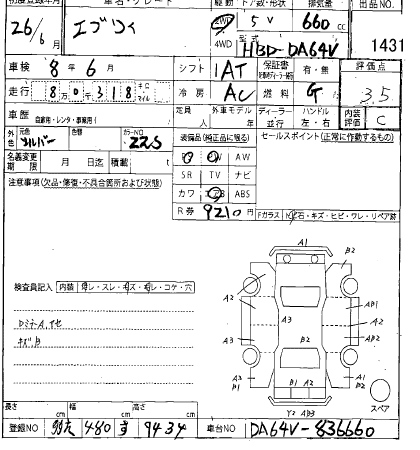 初度登録年月 車名・グレード 駆動 ドア数・形状 排気量 出品NO.
26/6月 エブリイ 2WD 5V 660cc
4WD 型式 HBD-DA64V 1431
車検 8年6月 シフト 1AT 保証書 有・無 評価点
走行 8万0千318 キロ マイル 冷房 AC 燃料 G 3.5
車歴 自家用・レンタ・事業用 定員 外車モデル ディーラー 並行 ハンドル 左・右 内装評価 C
外色 元色 シルバー 色替 カラーNO Z2S 装備品(純正品に限る) セールスポイント(正常に作動するもの)
名義変更期限 月 日迄 積載 t PS PW AW
注意事項(欠品・修復・不具合箇所および状態) SR TV ナビ
カワ エアB ABS
R券 9210円 Fガラス 飛石・キズ・ヒビ・ワレ・リペア跡
A1
B2
検査員記入 内装 ヨゴレ・スレ・キズ・コゲ・穴
A2 A2 AB1
A3 A3 B2 A2
キズ
A2 B1 B1 A2 A1 B1
Y2 AB3 スペア
長さ cm 幅 cm 高さ cm
登録NO 480 9434 車台NO DA64V-836660